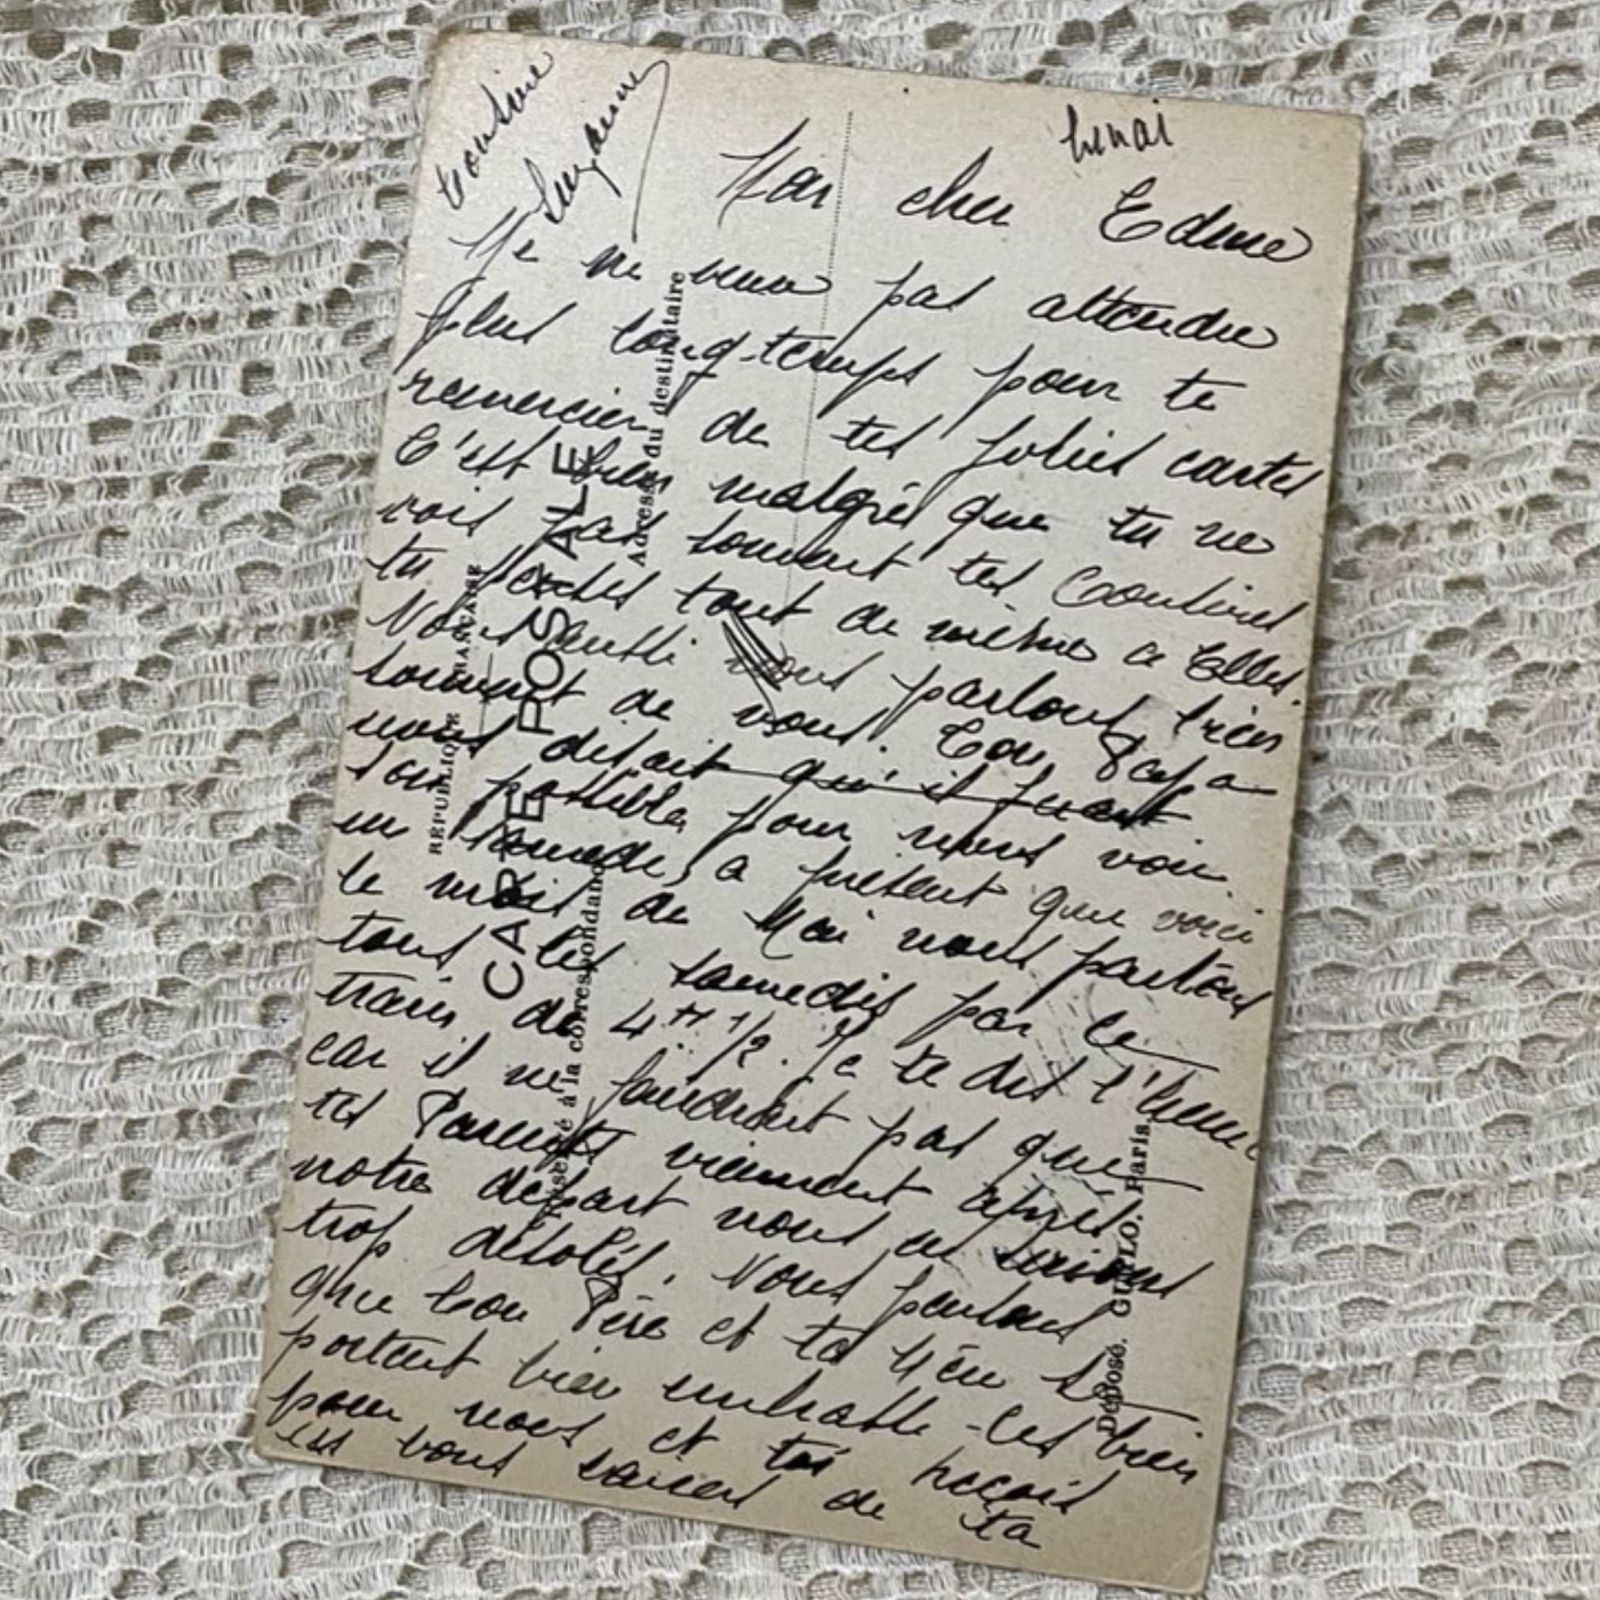 Mon cher Edme
Je ne veux pas attendre
plus longtemps pour te
remercier de tes jolies cartes
C'est bien malgré que tu ne
vois pas souvent tes Cousines
tu penses tout de même a Elles.
Nous aussi nous parlons bien
souvent de vous. Ton Papa
nous disait qu'il ferait
son possible pour nous voir
un samedi, a présent que voici
le mois de Mai nous partons
tous les samedis par le
train de 4H 1/2. Je te dis l'heure
car il ne faudrait pas que
tes Parents viennent après
notre départ nous en serions
trop désolés. Nous pensons
que ton Père et ta Mère se
portent bien embrasse-les bien
pour nous et toi reçois
les bons baisers de ta
Cousine
Suzanne
RÉPUBLIQUE FRANÇAISE
CARTE POSTALE
à la correspondance
Adresse du destinataire
Déposé. Paris.